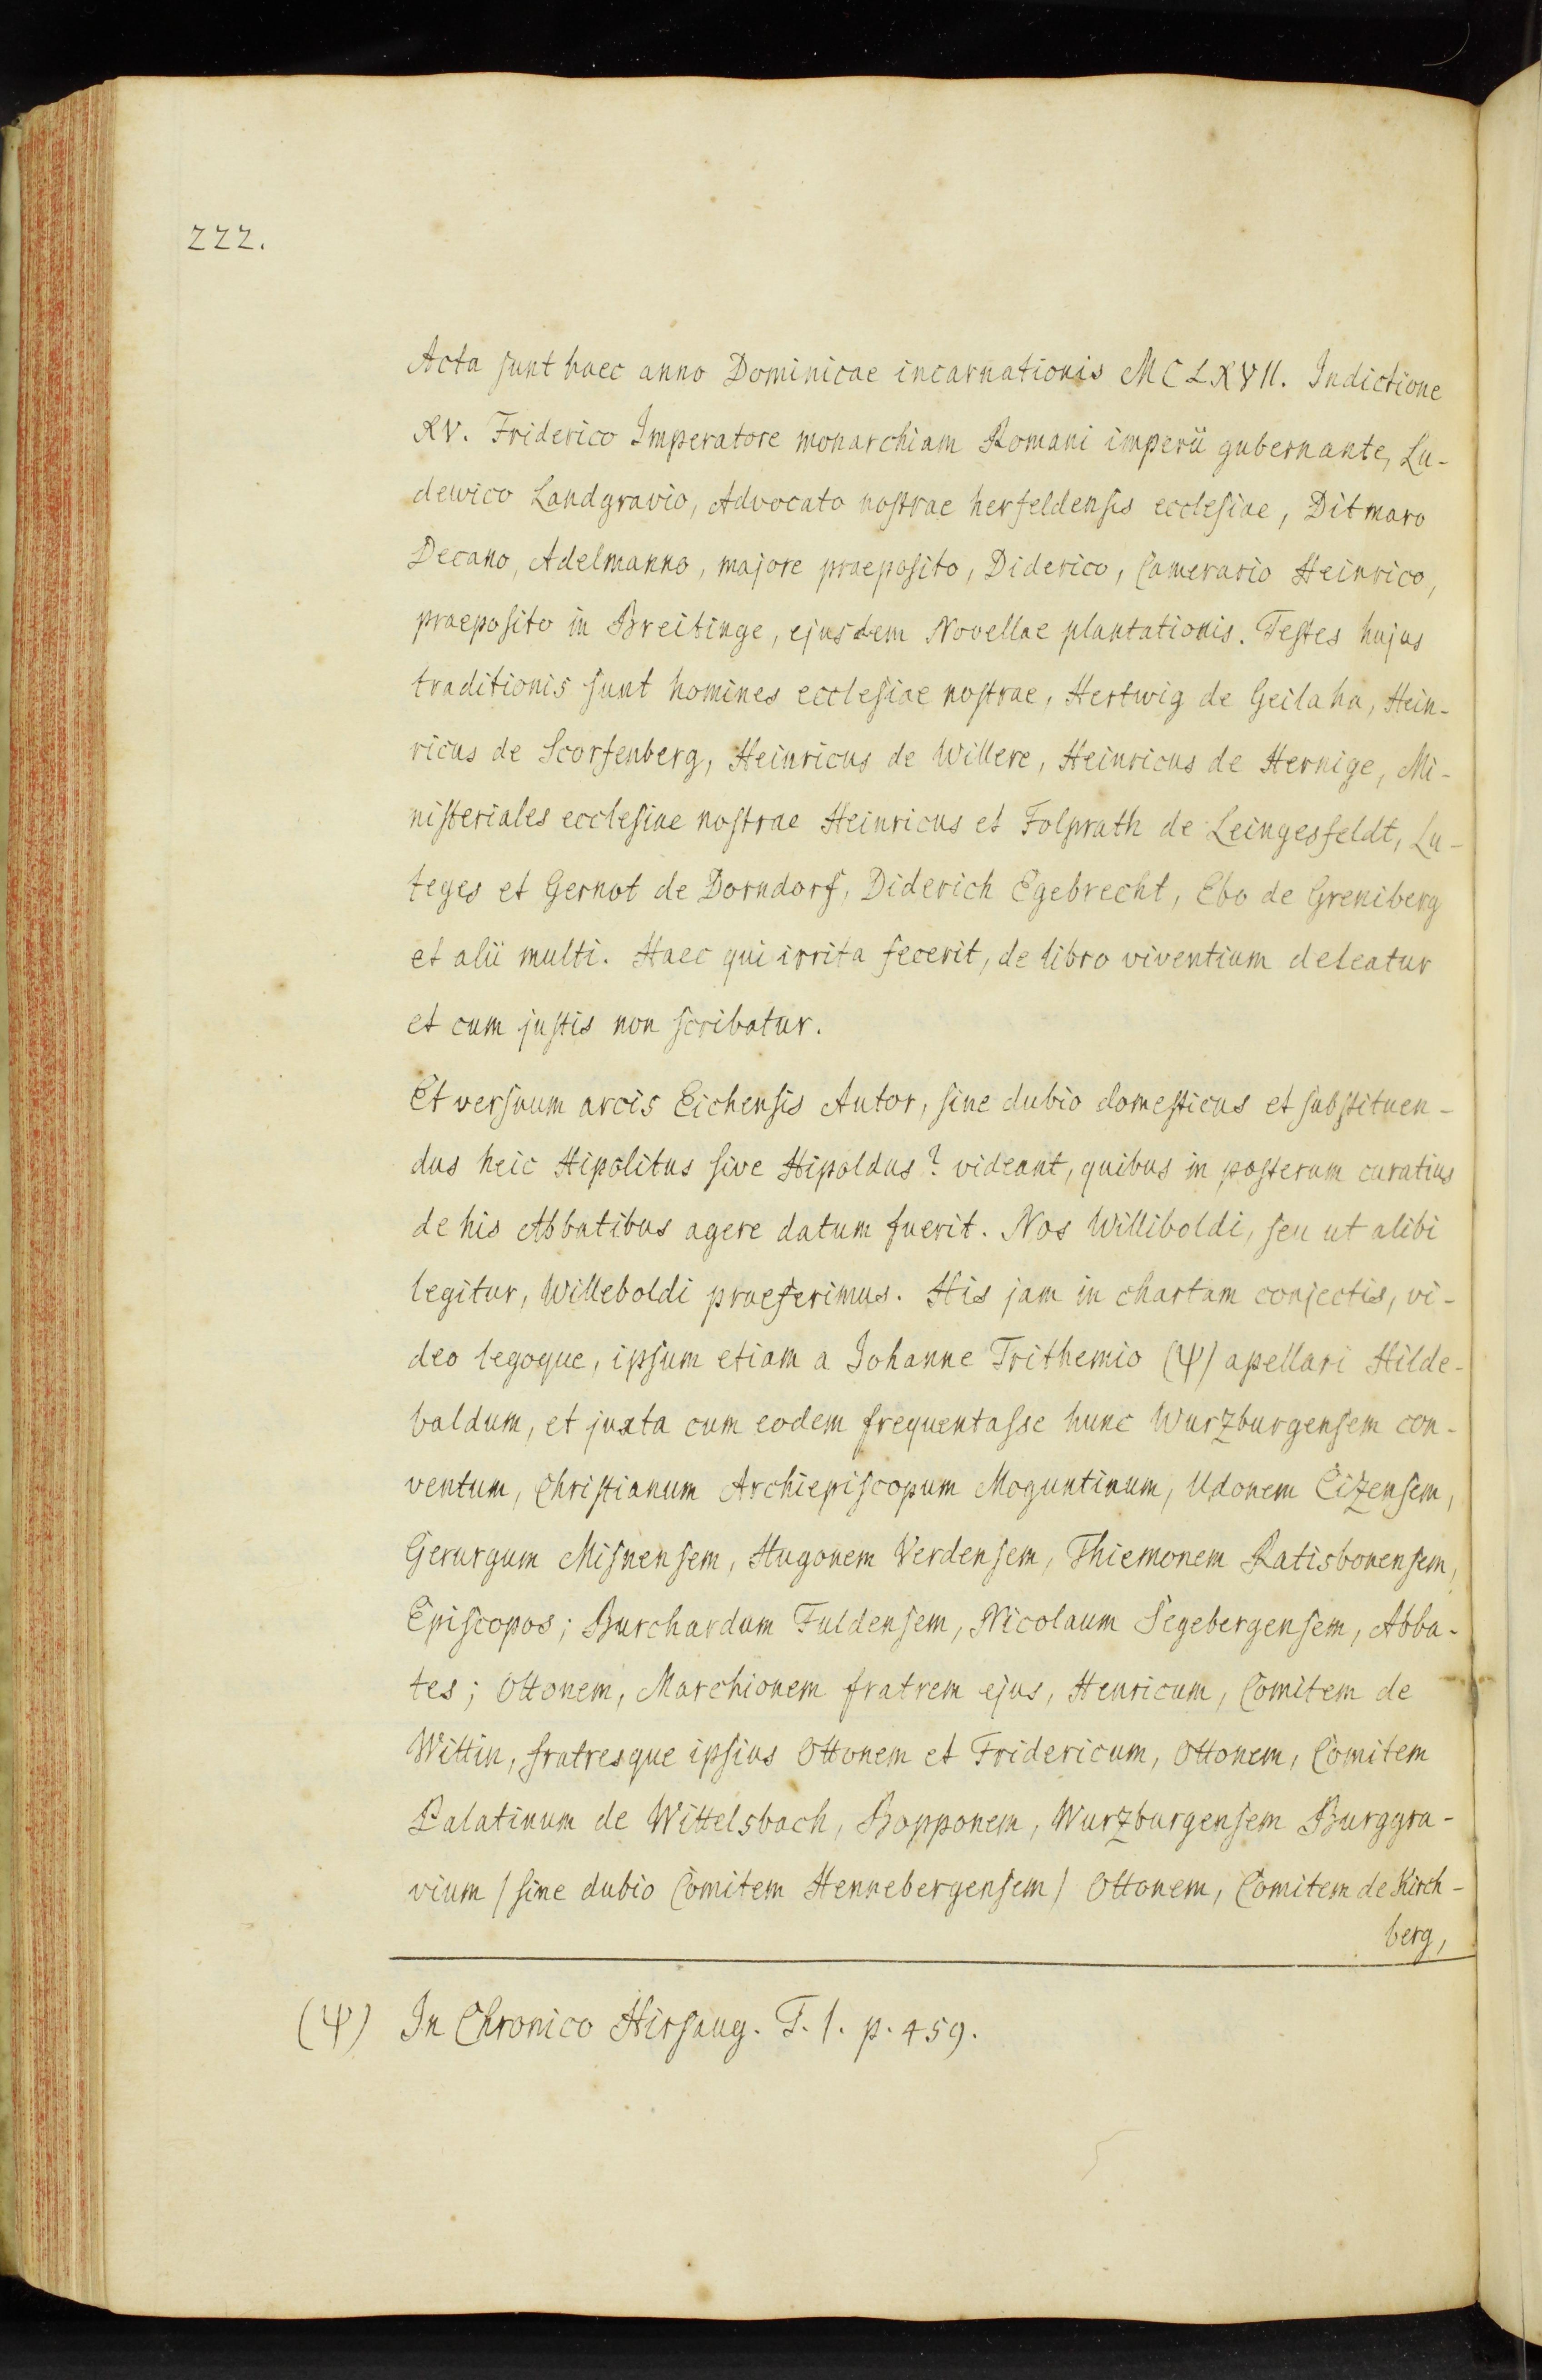 222.
Acta sunt haec anno Dominicae incarnationis MCLXVII. Indictione
XV. Friderico Imperatore monarchiam Romani imperii gubernante, Lu-
dewico Landgravio, Advocato nostrae herfeldensis ecclesiae, Ditmaro
Decano, Adelmanno, majore praeposito, Diderico, Camerario Heinrico,
praeposito in Breitinge, ejusdem Novellae plantationis. Testes hujus
traditionis sunt homines ecclesiae nostrae, Hertwig de Geilaha, Hein-
ricus de Scorfenberg, Heinricus de Willere, Heinricus de Hernige, Mi-
nisteriales ecclesiae nostrae Heinricus et Folprath de Leingesfeldt, Lu-
teges et Gernot de Dorndorf, Diderich Egebrecht, Ebo de Greniberg
et alii multi. Haec qui irrita fecerit, de libro viventium deleatur
et cum justis non scribatur.
Et versuum arcis Eichensis Autor, sine dubio domesticus et substituen-
dus heic Hipolitus sive Hipoldus? videant, quibus in posterum curatius
de his Abbatibus agere datum fuerit. Nos Williboldi, seu ut alibi
legitur, Willeboldi praeferimus. His jam in chartam conjectis, vi-
deo legoque, ipsum etiam a Johanne Trithemio (Ψ) apellari Hilde-
baldum, et juxta cum eodem frequentasse hunc Wurzburgensem con-
ventum, Christianum Archiepiscopum Moguntinum, Udonem Cizensem,
Gerurgum Misnensem, Hugonem Verdensem, Thiemonem Ratisbonensem,
Episcopos; Burchardum Fuldensem, Nicolaum Segebergensem, Abba-
tes; Ottonem, Marchionem fratrem ejus, Henricum, Comitem de
Wittin, fratresque ipsius Ottonem et Fridericum, Ottonem, Comitem
Palatinum de Wittelsbach, Bopponem, Wurzburgensem Burggra-
vium / sine dubio Comitem Hennebergensem / Ottonem, Comitem de Kirch-
berg,
(Ψ) In Chronico Hirsaug. T. 1. p. 459.